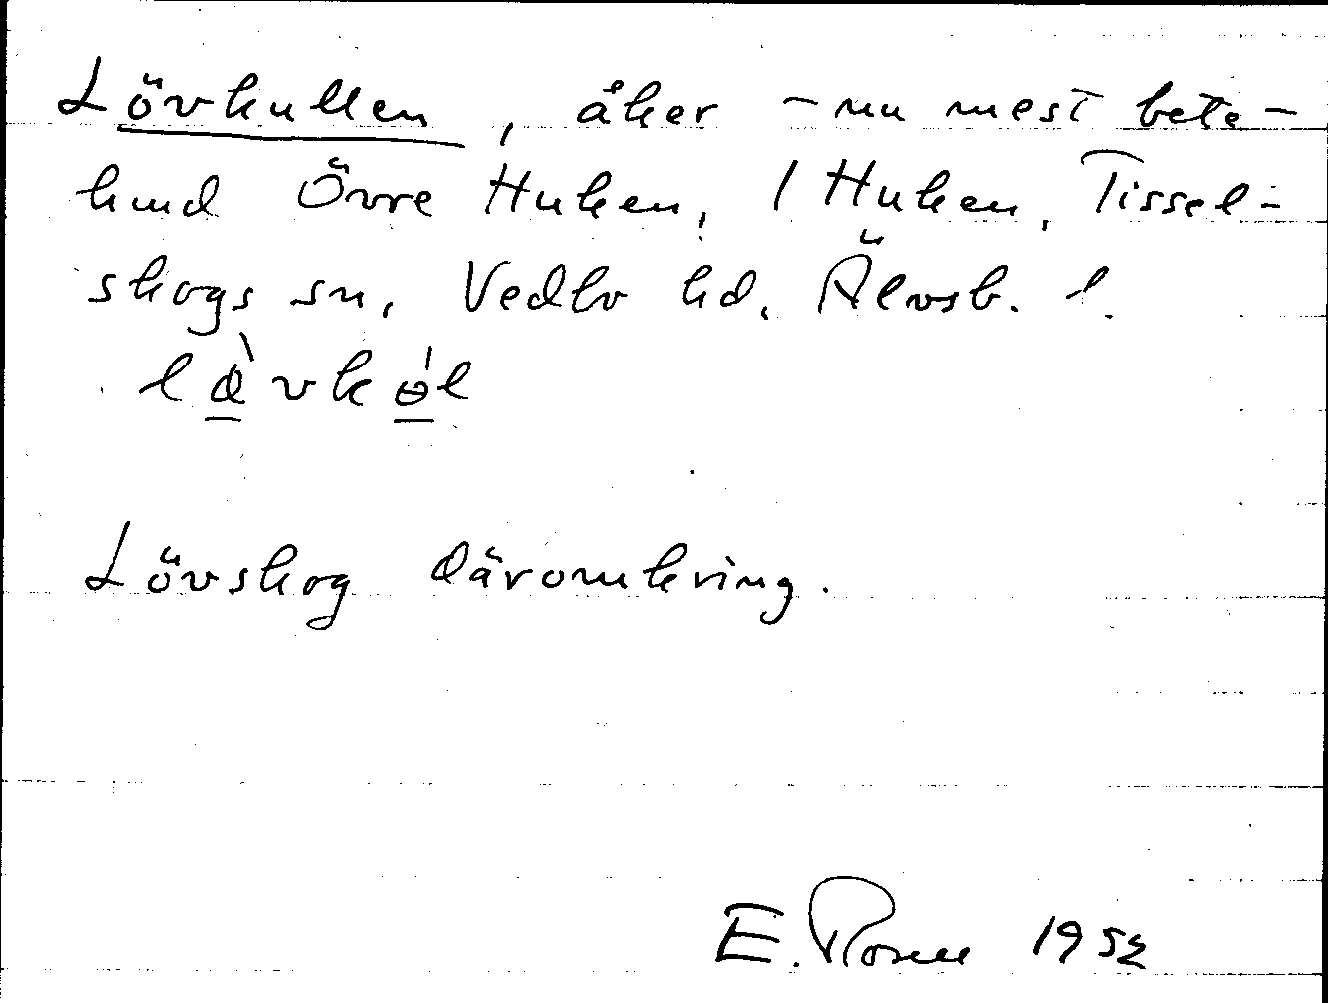 Lövkullen, åker - nu mest bete -
hund Övre Huken, 1 Huken, Tissel-
skogs sn, Vedbo hd. Älvsb. l.
Lövskog däromkring.
E. Rosell 1952